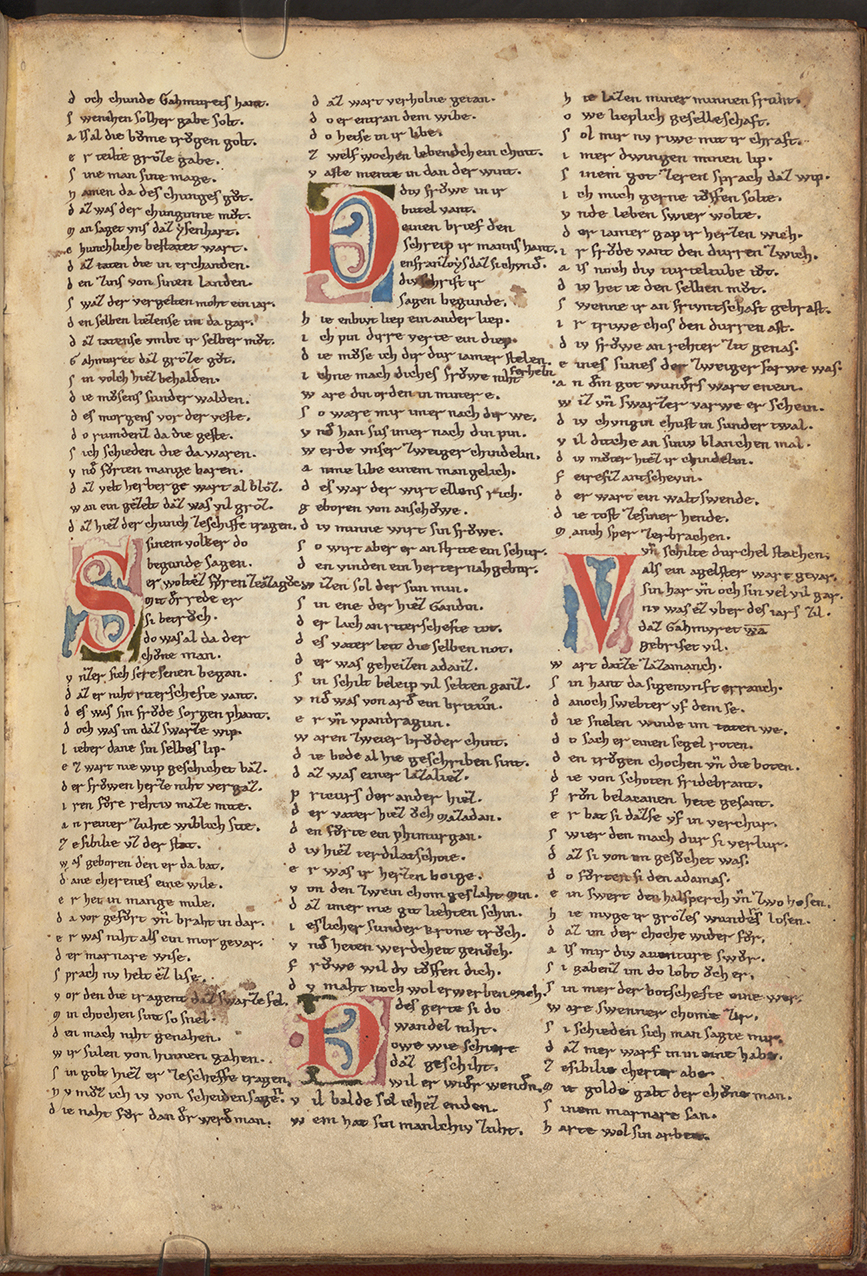 d och chunde Gahmurets hant.
s wenchen solher gabe solt.
a lsal die bovme trogen golt.
e r teilte groze gabe.
s ine man sine mage.
n amen da des chunges gůt.
d az was der chunginne můt.
m an saget vns daz ysenhart.
e hunchliche bestatet wart.
d az taten die in erchanden.
d en zins von sinen landen.
s waz der vergelten moht ein iar.
d en selben liezense im da gar.
d az tatense vmbe ir selber můt.
G ahmuret daz groze gůt.
s in volch hiez behalden.
d ie mosens sunder walden.
d es morgens vor der veste.
d o rumdenz da die geste.
s ich schieden die da waren.
v nd forten manige baren.
d az velt herberge wart al bloz.
w an ein gezelt daz was vil groz.
d az hiez der chunich zeschiffe tragen.
S sinem volke er do
begunde sagen.
er wold ez fůren zeazagouc
mit der rede er
si betroch.
do was al da der
chone man.
v nzer sich sere senen began.
d az er niht riterschefte vant.
d es was sin frode sorgen phant.
d och was im daz swarze wip.
l ieber dane sin selbes lip.
e z wart nie wip geschichet baz.
d er frowen herze niht vergaz.
i ren fore rehtiv mazte mite.
a n reiner zuhte wiblich site.
z e sibilie vz der stat.
w as geboren den er da bat.
d ane cherenes eine wile.
e r het in mange mile.
d a vor gefort vn braht in dar.
e r was niht als ein mor gevar.
d er marnare wise.
s prach nv helt ez lise.
v or den die tragent daz swarze fel.
m in chochen sint so snel.
d en mach niht genahen.
w ir sulen von hinnen gahen.
s in golt hiez er zeschiffe tragen.
n v můz ich iv von scheiden sagen.
d ie naht for dan der werdman.
d az wart verholne getan.
d o er entran dem wibe.
d o hetse in ir libe.
z welf wochen lebendech ein chint.
v aste mente in dan der wint.
D div frowe in ir
butel vant.
einen brief den
screip ir mannis hant.
enfranzoys daz si chunde.
div schrift ir
sagen begunde.
h ie enbiut liep ein ander liep.
i ch pin dirre verte ein diep.
d ie můse ich dir dur iamer stelen.
i chne mach dich es frowe niht ferheln
w are din orden in miner e.
s o ware mir imer nach dir we.
v nd han sus imer nach dir pin.
w erde vnser zweiger chindelin.
a nime libe einem man gelich.
d es war der wirt ellens rich.
g eboren von anschowe.
d iv minne wirt sin frowe.
s o wirt aber er an strite ein schur.
d en vinden ein herter nahgebur.
w izen sol der sun min.
s in ene der hiez Gandin.
d er lach an riterschefte tot.
d es vater leit die selben not.
d er was geheizen adanz.
s in schilt beleip vil selten ganz.
v nd was von ard ein britun.
e r vn vpandragun.
w aren zweier brůder chint.
d ie bede al hie geschriben sint.
d az was einer lazaliez.
p rieurs der ander hiez.
d er vater hiez och mazadan.
d en forte ein phimurgan.
d iv hiez terdilatschoie.
e r was ir herzen boige.
v on den zwein chom geslaht min.
d az imer me git liehten schin.
i eslicher sunder krone troch.
v nd heten werdcheit genoch.
f rowe wil dv toffen dich.
d v maht noch wol erwerben mich.
D des gerte si do
wandel niht.
owe wie schiere
daz geschiht.
wil er wider wenden.
v il balde sol ichez enden.
w em hat sin manlichiv zuht.
h ie lazen miner minnen fruht.
o we lieplich geselleschaft.
s ol mir nv riwe mit ir chraft.
i mer dwingen minen lip.
s inem got zeren sprach daz wip.
i ch mich gerne toffen solte.
v nde leben swier wolte.
d er iamer gap ir herzen wich.
i r frode vant den durren zwich.
a ls noch div turteltube tůt.
d iv het ie den selben můt.
s wenne ir an friuntschaft gebrast.
i r triwe chos den durren ast.
d iv frowe an rehter zit genas.
e ines sunes der zweiger farwe was.
a n dem got wunders wart enein.
w iz vn swarzer varwe er schein.
d iv chungin chust in sunder twal.
v il diche an siniv blanchen mal.
d iv můter hiez ir chindelin.
f eirefiz antschevin.
d er wart ein waltswende.
d ie tiost zesiner hende.
m anch sper zerbrachen.
V vn schilte durchel stachen.
als ein agelster wart gevar.
sin har vn och sin vel vil gar.
nv was ez vber des iars zil.
daz Gahmuret wa
gebriset vil.
w art dazze zazamanch.
s in hant da sigenvnft erranch.
d anoch swebter vf dem se.
d ie snelen winde im taten we.
d o sach er einen segel roten.
d en trogen chochen vn die boten.
d ie von schoten fridebrant.
f ron belacanen hete gesant.
e r bat si dazse vf in verchur.
s wier den mach dur si verlur.
d az si von im gesochet was.
d o forten si den adamas.
e in swert den halsperch vn zwo hosen.
h ie muge ir grozes wunders losen.
d az im der choche wider for.
a ls mir div aventure swor.
s i gabenz im do lobt och er.
s in mer der botschefte eine wer.
w are swenner chome zir.
s i schieden sich man sagte mir.
d az mer warf in in eine habe.
z esibilie cherter abe
m it golde galt der chone man.
s inem marnare san.
h arte wol sin arbeit.